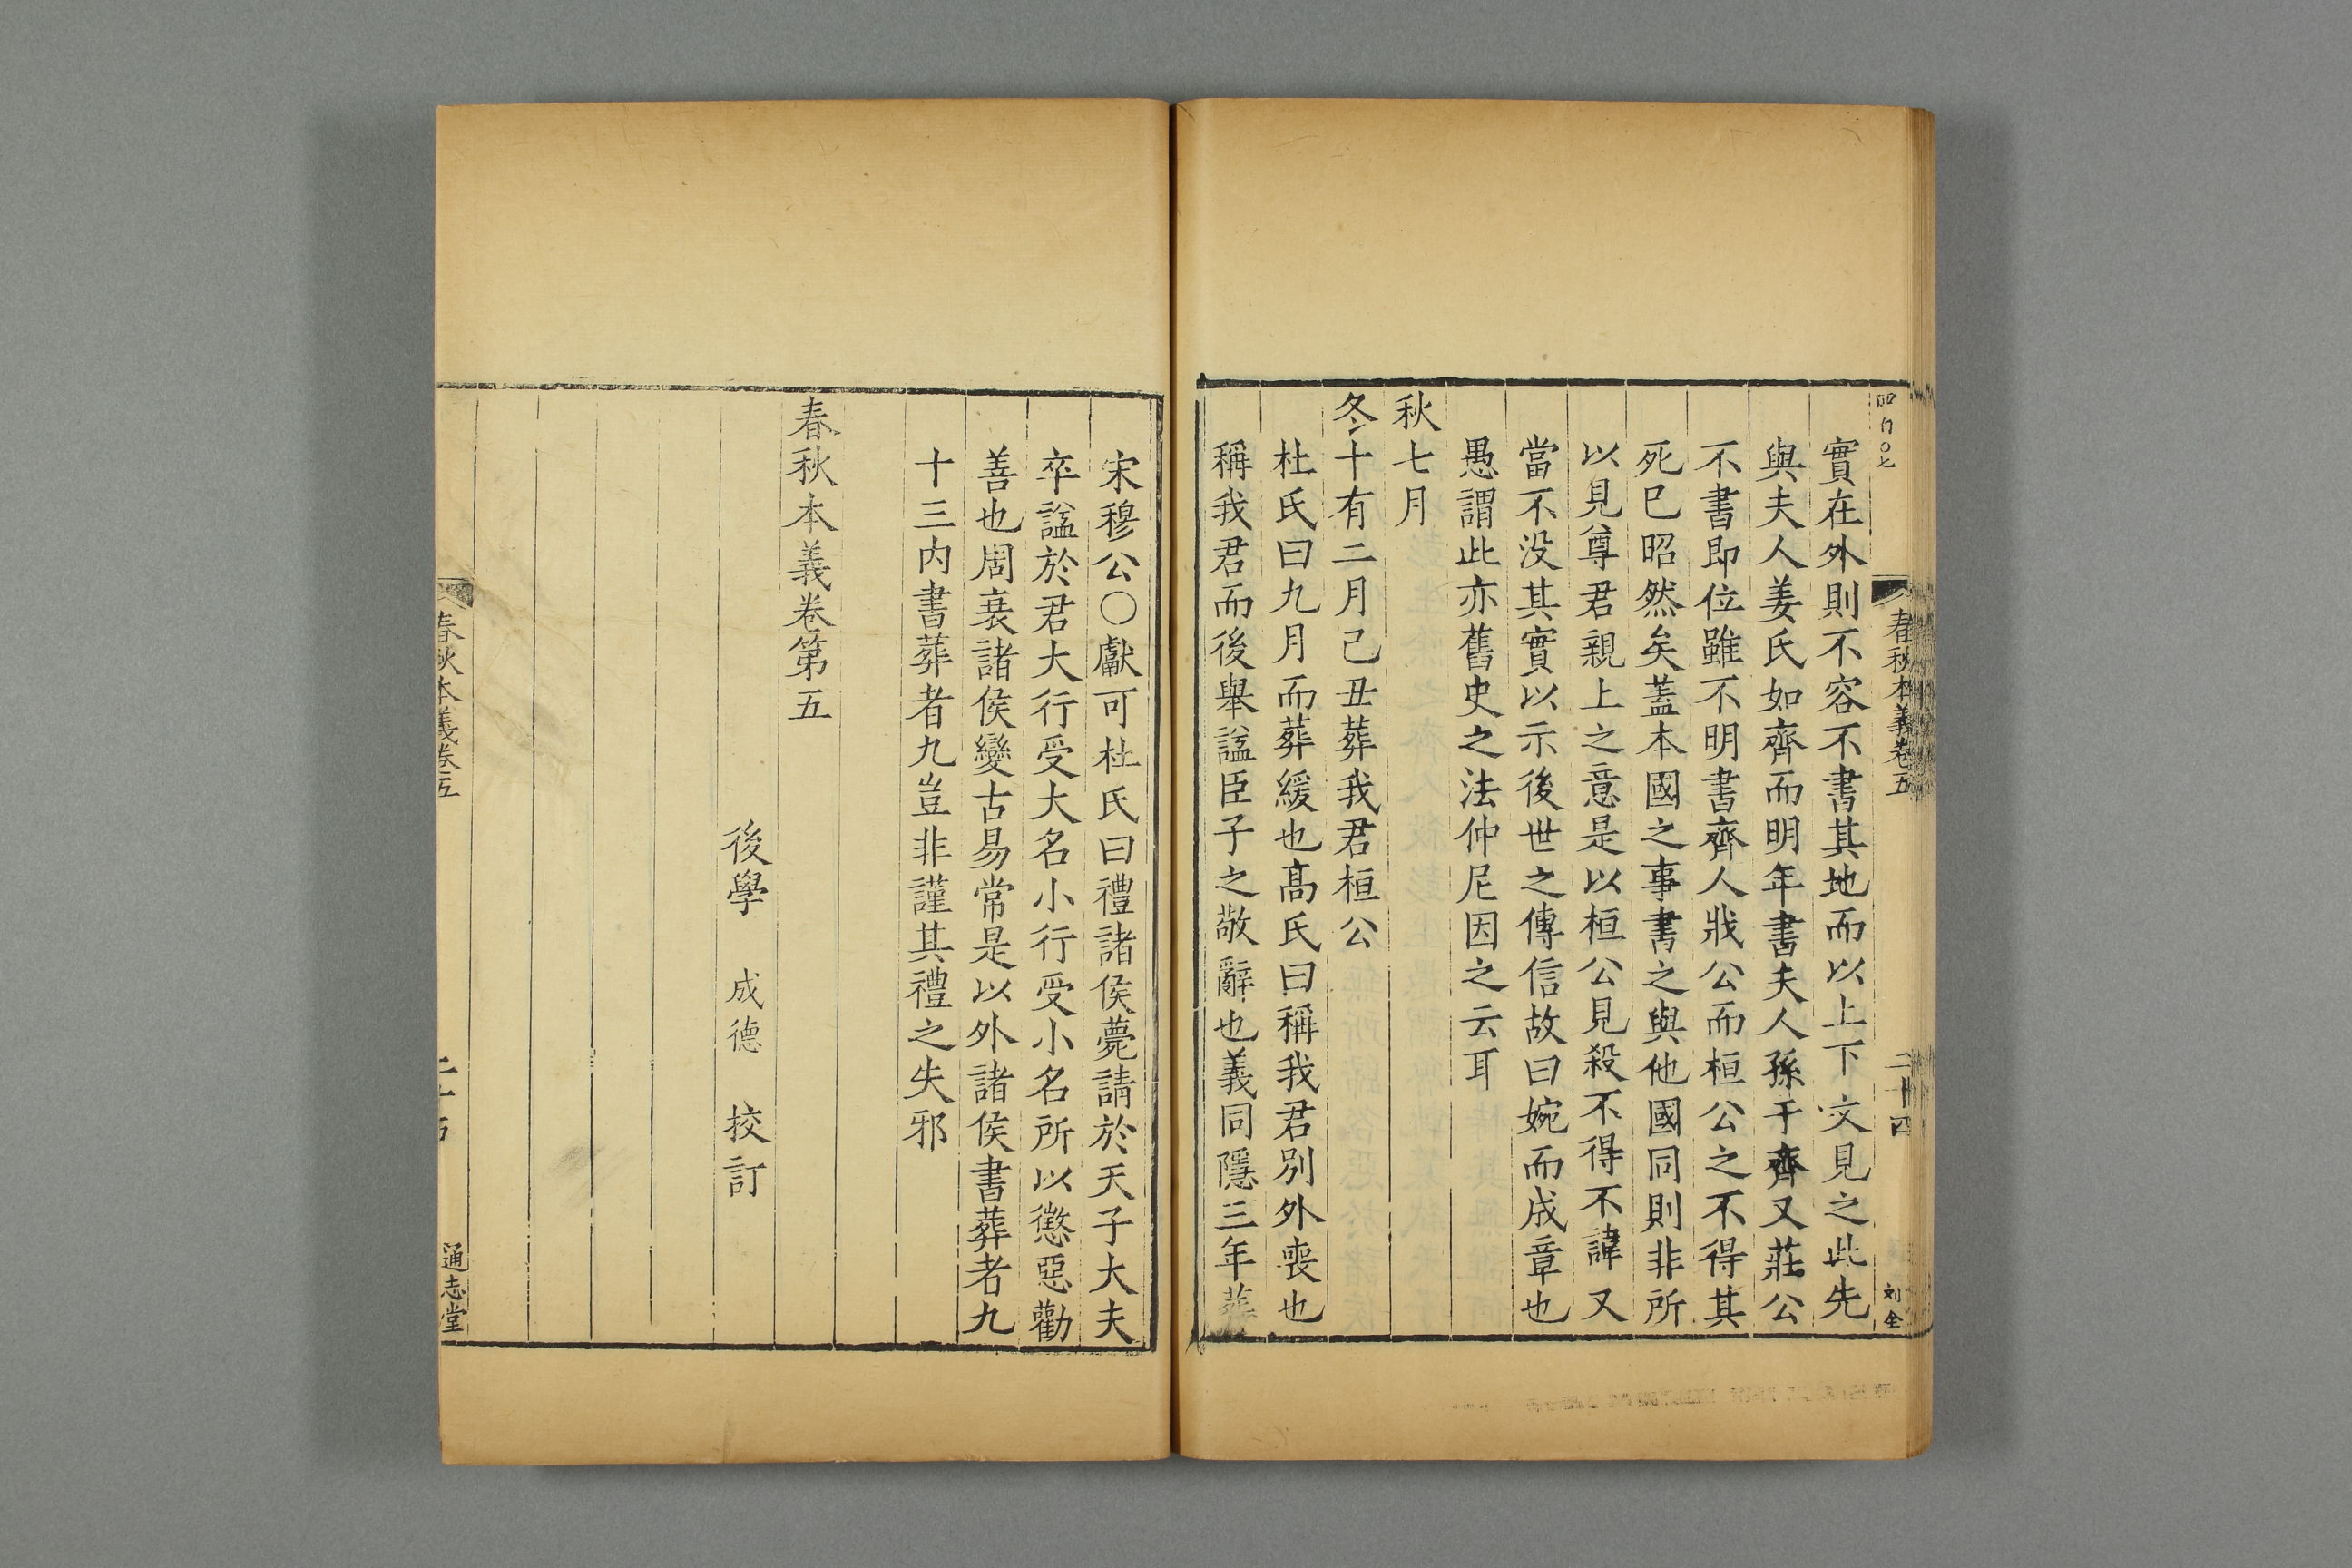 四百〇七
春秋本義卷五
二十四
刘全
實在外則不容不書其地而以上下文見之此先
與夫人姜氏如齊而明年書夫人孫于齊又莊公
不書即位雖不明書齊人戕公而桓公之不得其
死已昭然矣蓋本國之事書之與他國同則非所
以見尊君親上之意是以桓公見殺不得不諱又
當不没其實以示後世之傳信故曰婉而成章也
愚謂此亦舊史之法仲尼因之云耳
秋七月
冬十有二月己丑葬我君桓公
杜氏曰九月而葬緩也髙氏曰稱我君別外喪也
稱我君而後舉諡臣子之敬辭也義同隱三年葬
宋穆公〇獻可杜氏曰禮諸侯薨請於天子大夫
卒諡於君大行受大名小行受小名所以懲惡勸
善也周衰諸侯變古易常是以外諸侯書葬者九
十三内書葬者九豈非謹其禮之失邪
春秋本義卷第五
後學 成德 校訂
春秋本義卷五
通志堂